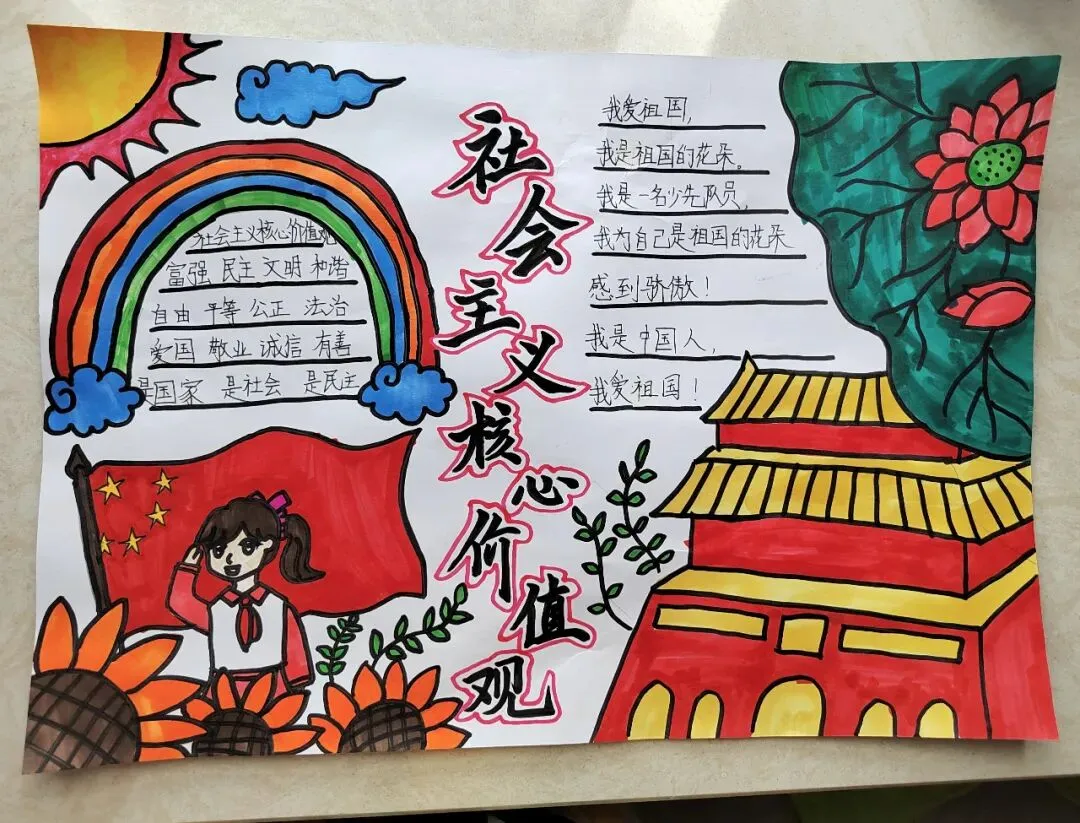 社会主义核心价值观
社会主义核心价值观
富强 民主 文明 和谐
自由 平等 公正 法治
爱国 敬业 诚信 有善
是国家 是社会 是民主
我爱祖国,
我是祖国的花朵。
我是一名少先队员,
我为自己是祖国的花朵
感到骄傲!
我是中国人,
我爱祖国!